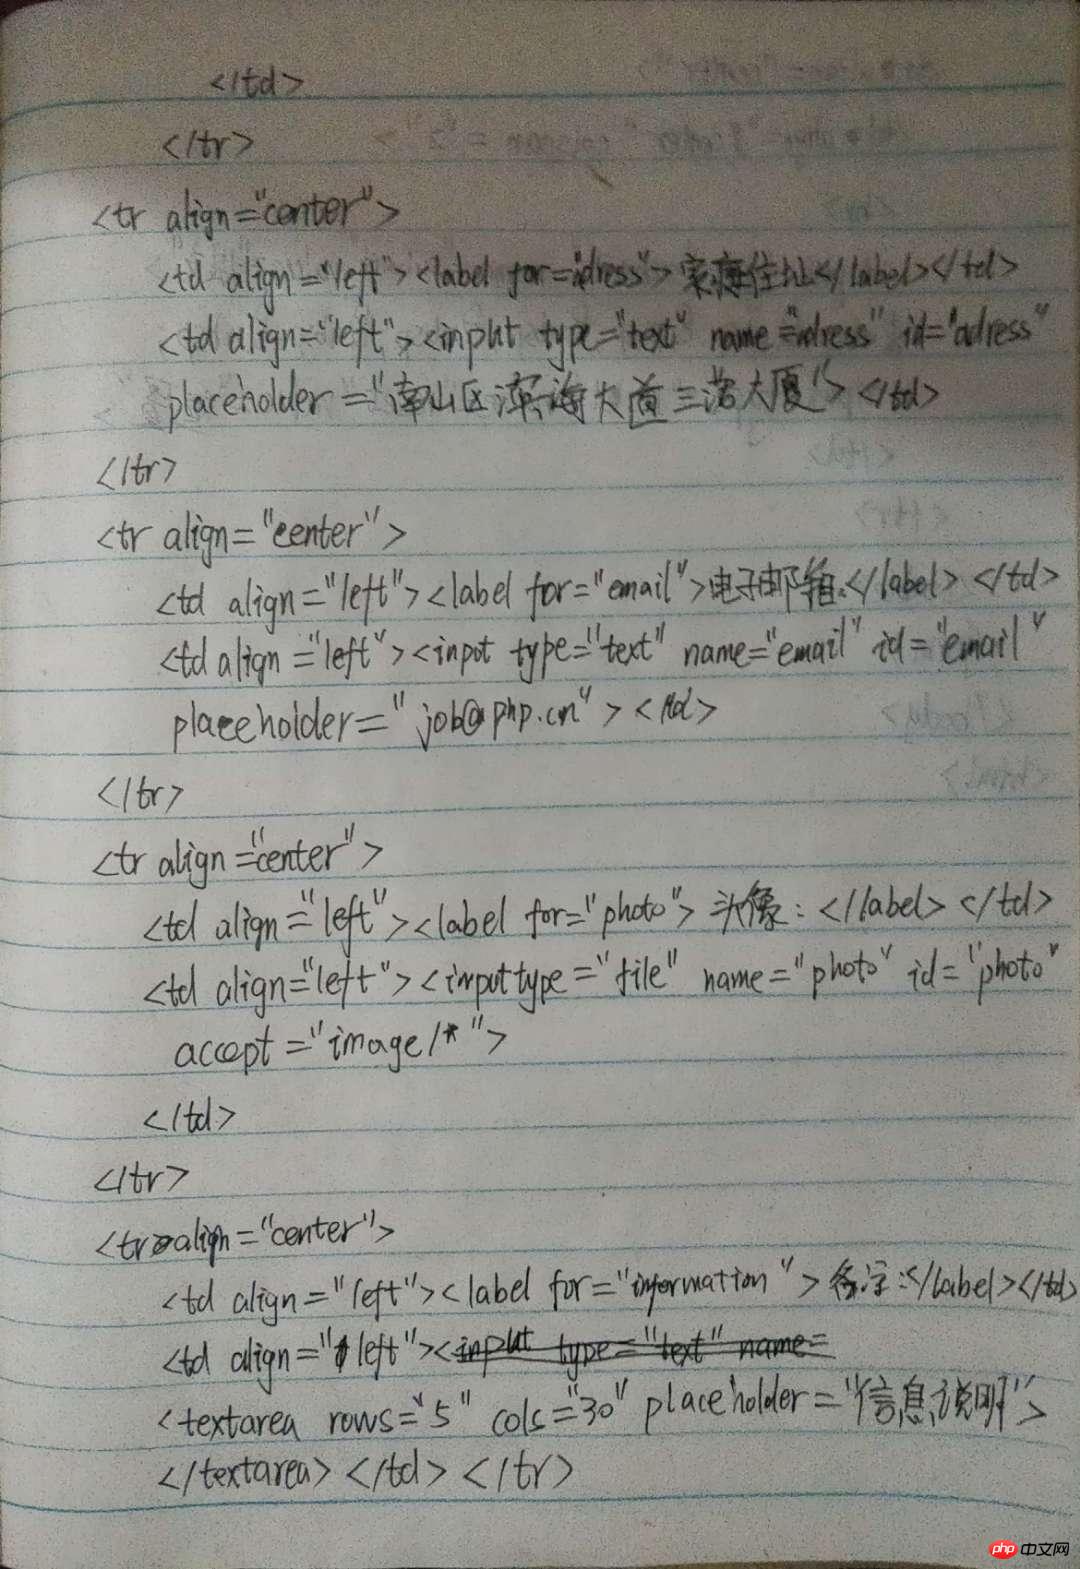 </td>
</tr>
<tr align="center">
<td align="left"><label for="adress">家庭住址</label></td>
<td align="left"><input type="text" name="adress" id="adress"
placeholder="南山区滨海大道三诺大厦"></td>
</tr>
<tr align="center">
<td align="left"><label for="email">电子邮箱:</label></td>
<td align="left"><input type="text" name="email" id="email"
placeholder="job@php.cn"></td>
</tr>
<tr align="center">
<td align="left"><label for="photo">头像:</label></td>
<td align="left"><input type="file" name="photo" id="photo"
accept="image/*">
</td>
</tr>
<tr align="center">
<td align="left"><label for="information">备注:</label></td>
<td align="left"><input type="text" name=
<textarea rows="5" cols="30" placeholder="信息说明">
</textarea></td></tr>
php 中文网